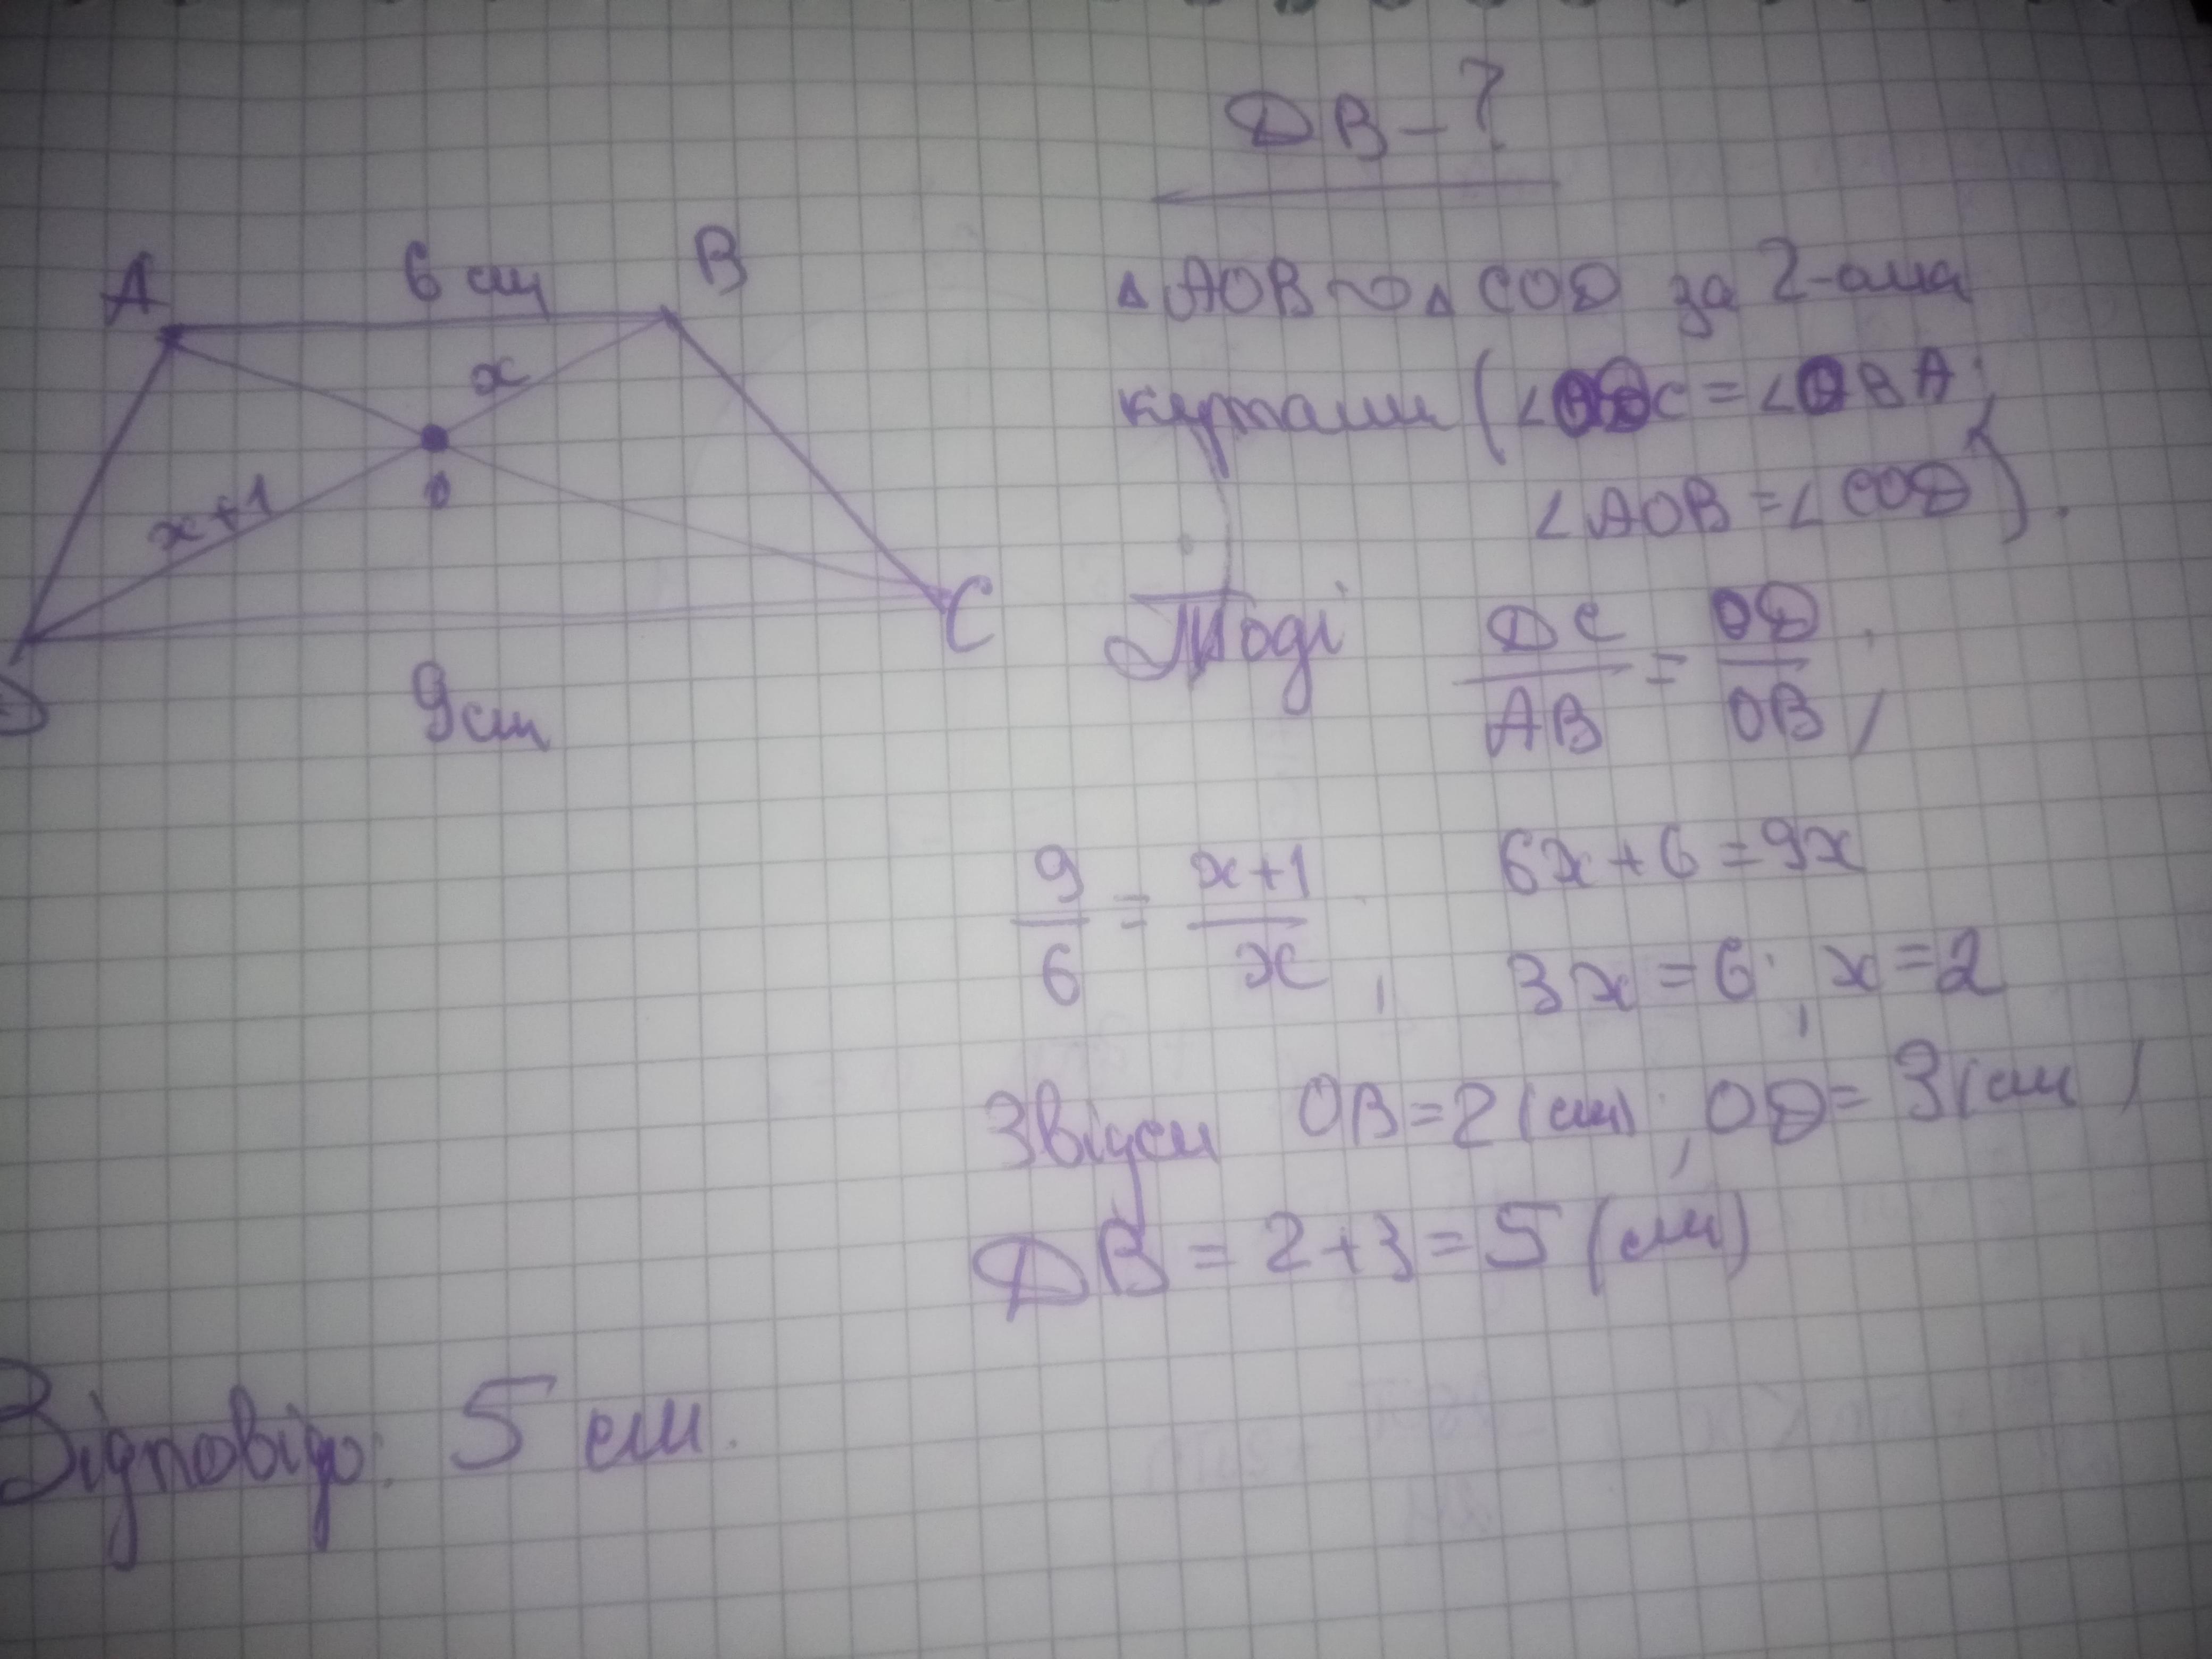 DB - ?
A 6 см B
x
x+1
O
D C
9 см
△ AOB ~ △ COD за 2-ома
кутами (∠ODC = ∠OBA;
∠AOB = ∠COD).
Тоді DC/AB = OD/OB,
9/6 = x+1/x, 6x + 6 = 9x
3x = 6; x = 2
Звідси OB = 2 (см); OD = 3 (см)
DB = 2+3 = 5 (см)
Відповідь: 5 см.